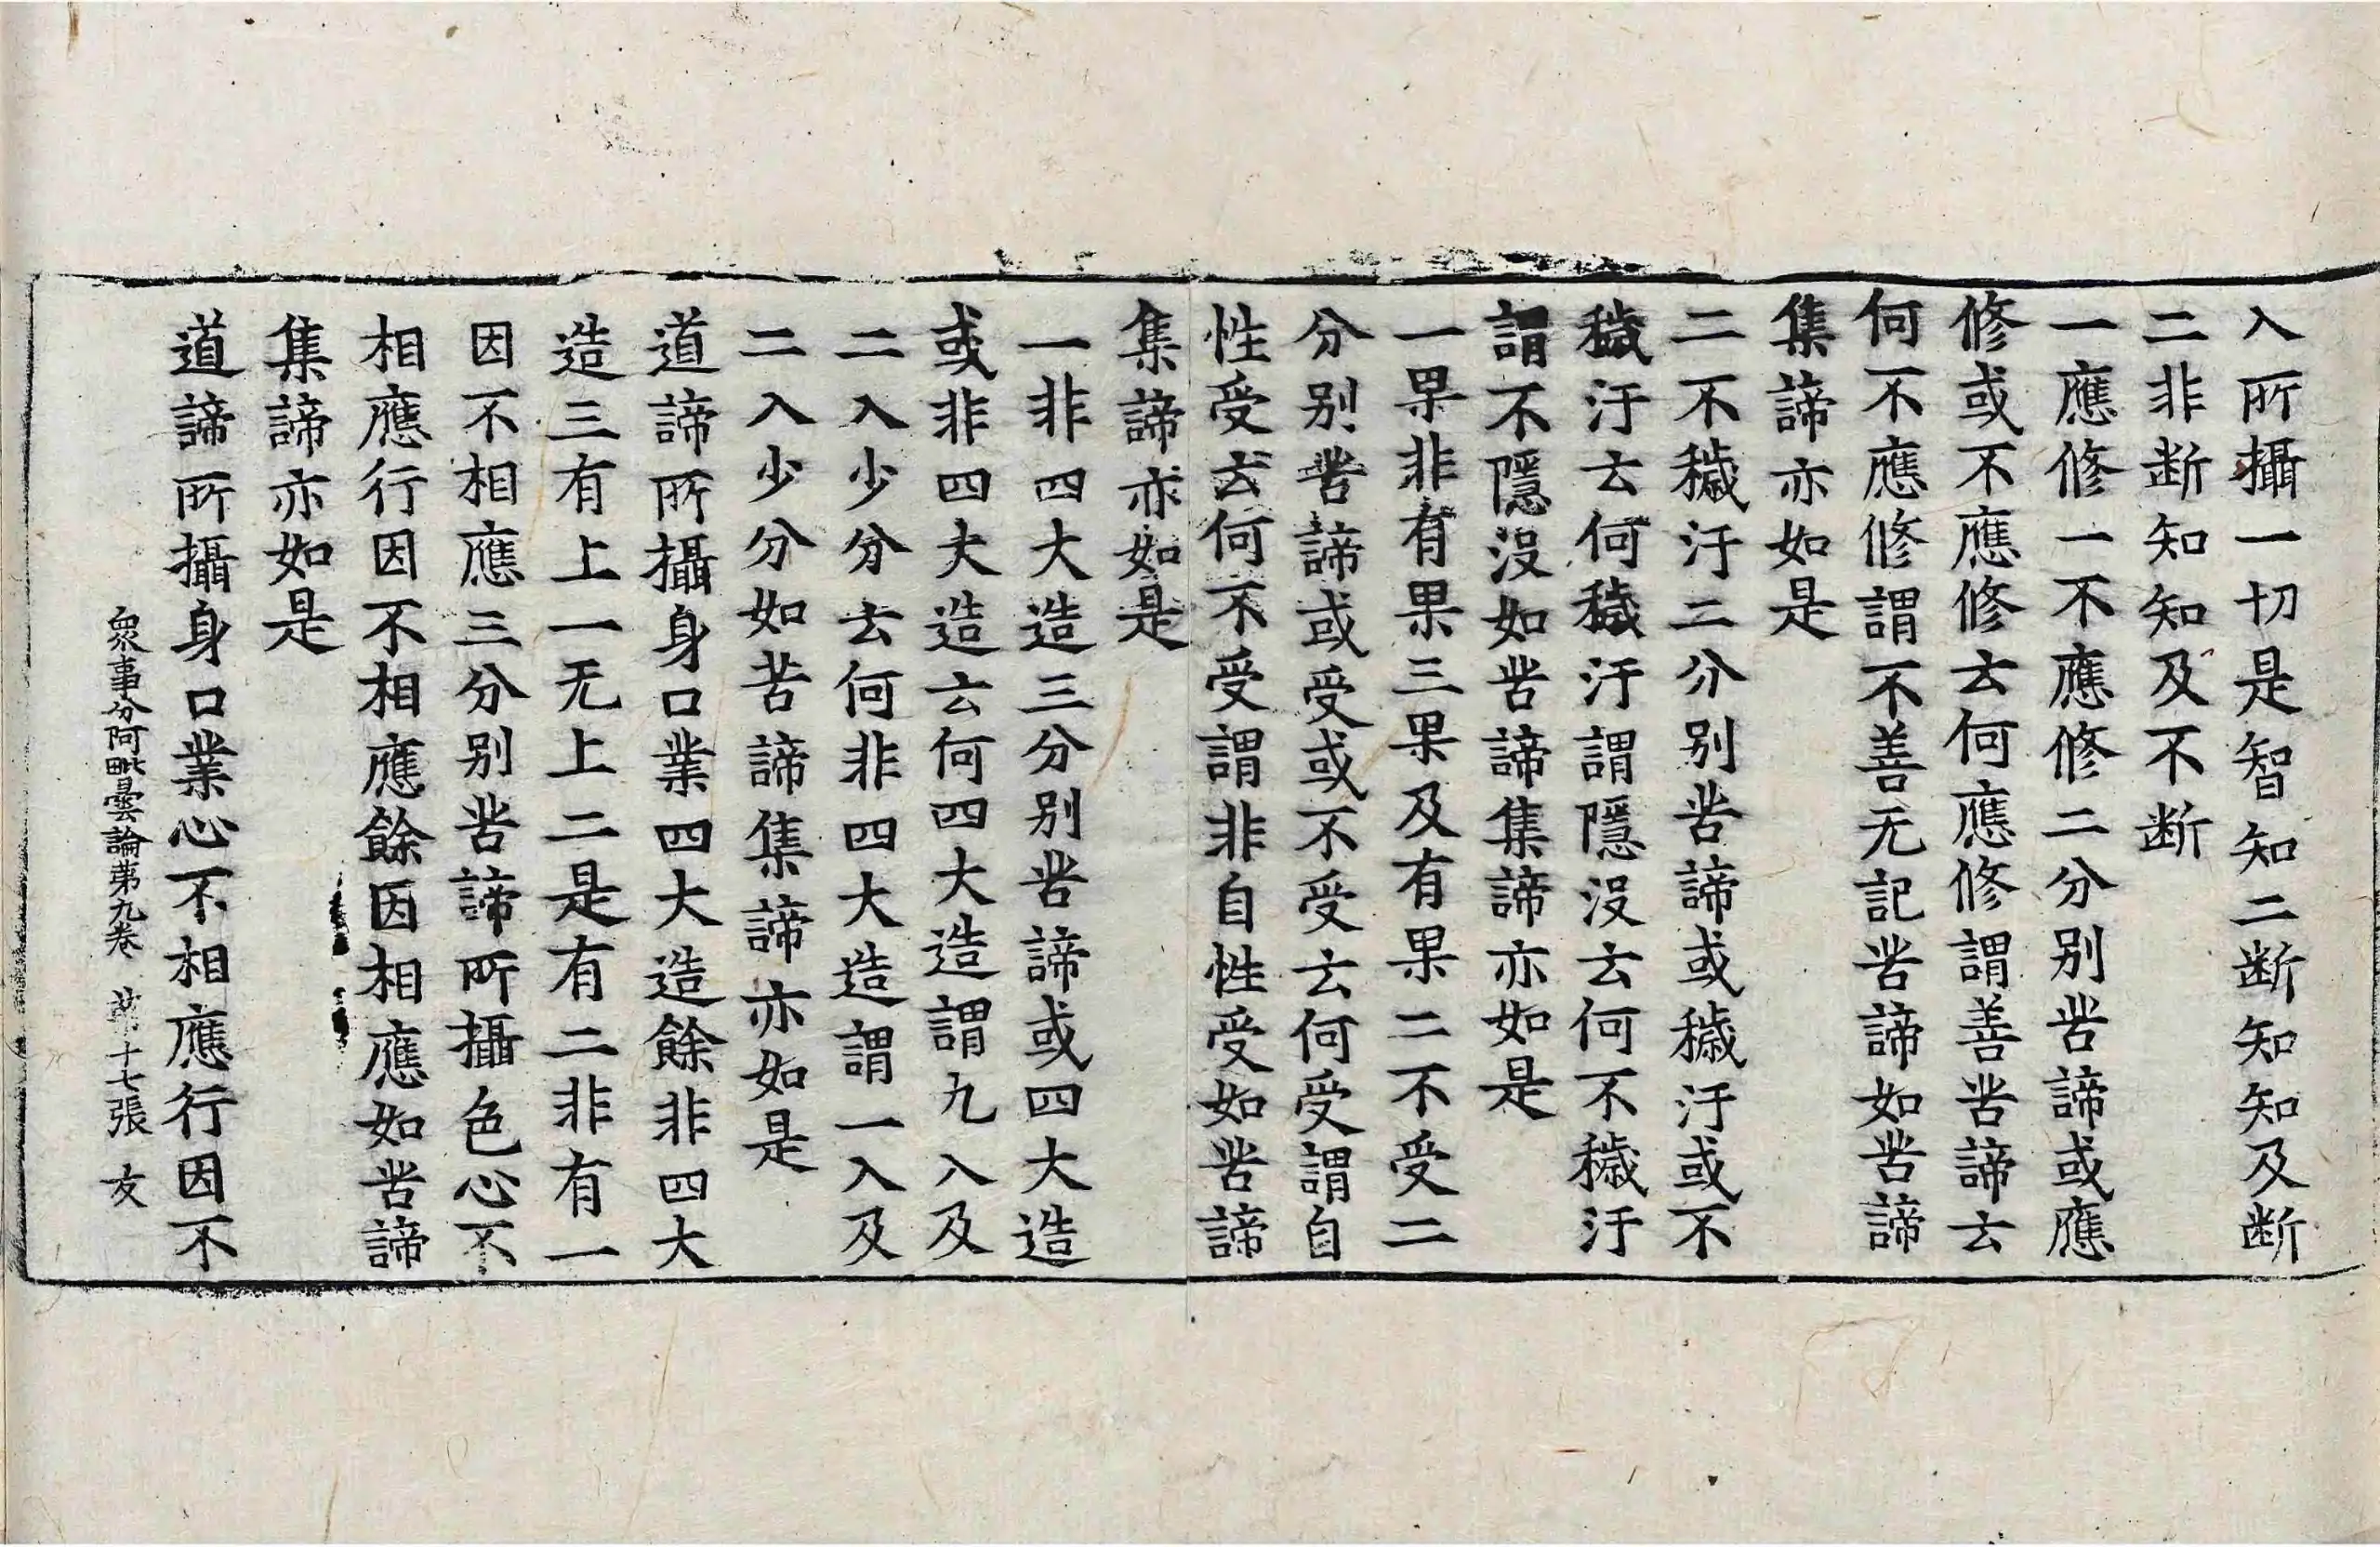 入所攝一切是智知二断知知及断
二非断知知及不断
一應修一不應修二分别苦諦或應
修或不應修云何應修謂善苦諦云
何不應修謂不善无記苦諦如苦諦
集諦亦如是
二不穢汙二分别苦諦或穢汙或不
穢汙云何穢汙謂隱没云何不穢汙
謂不隱没如苦諦集諦亦如是
一果非有果三果及有果二不受二
分别苦諦或受或不受云何受謂自
性受云何不受謂非自性受如苦諦
集諦亦如是
一非四大造三分别苦諦或四大造
或非四大造云何四大造謂九入及
二入少分云何非四大造謂一入及
二入少分如苦諦集諦亦如是
道諦所攝身口業四大造餘非四大
造三有上一无上二是有二非有一
因不相應三分别苦諦所攝色心不
相應行因不相應餘因相應如苦諦
集諦亦如是
道諦所攝身口業心不相應行因不
衆事分阿毗曇論苐九卷 苐十七張 友